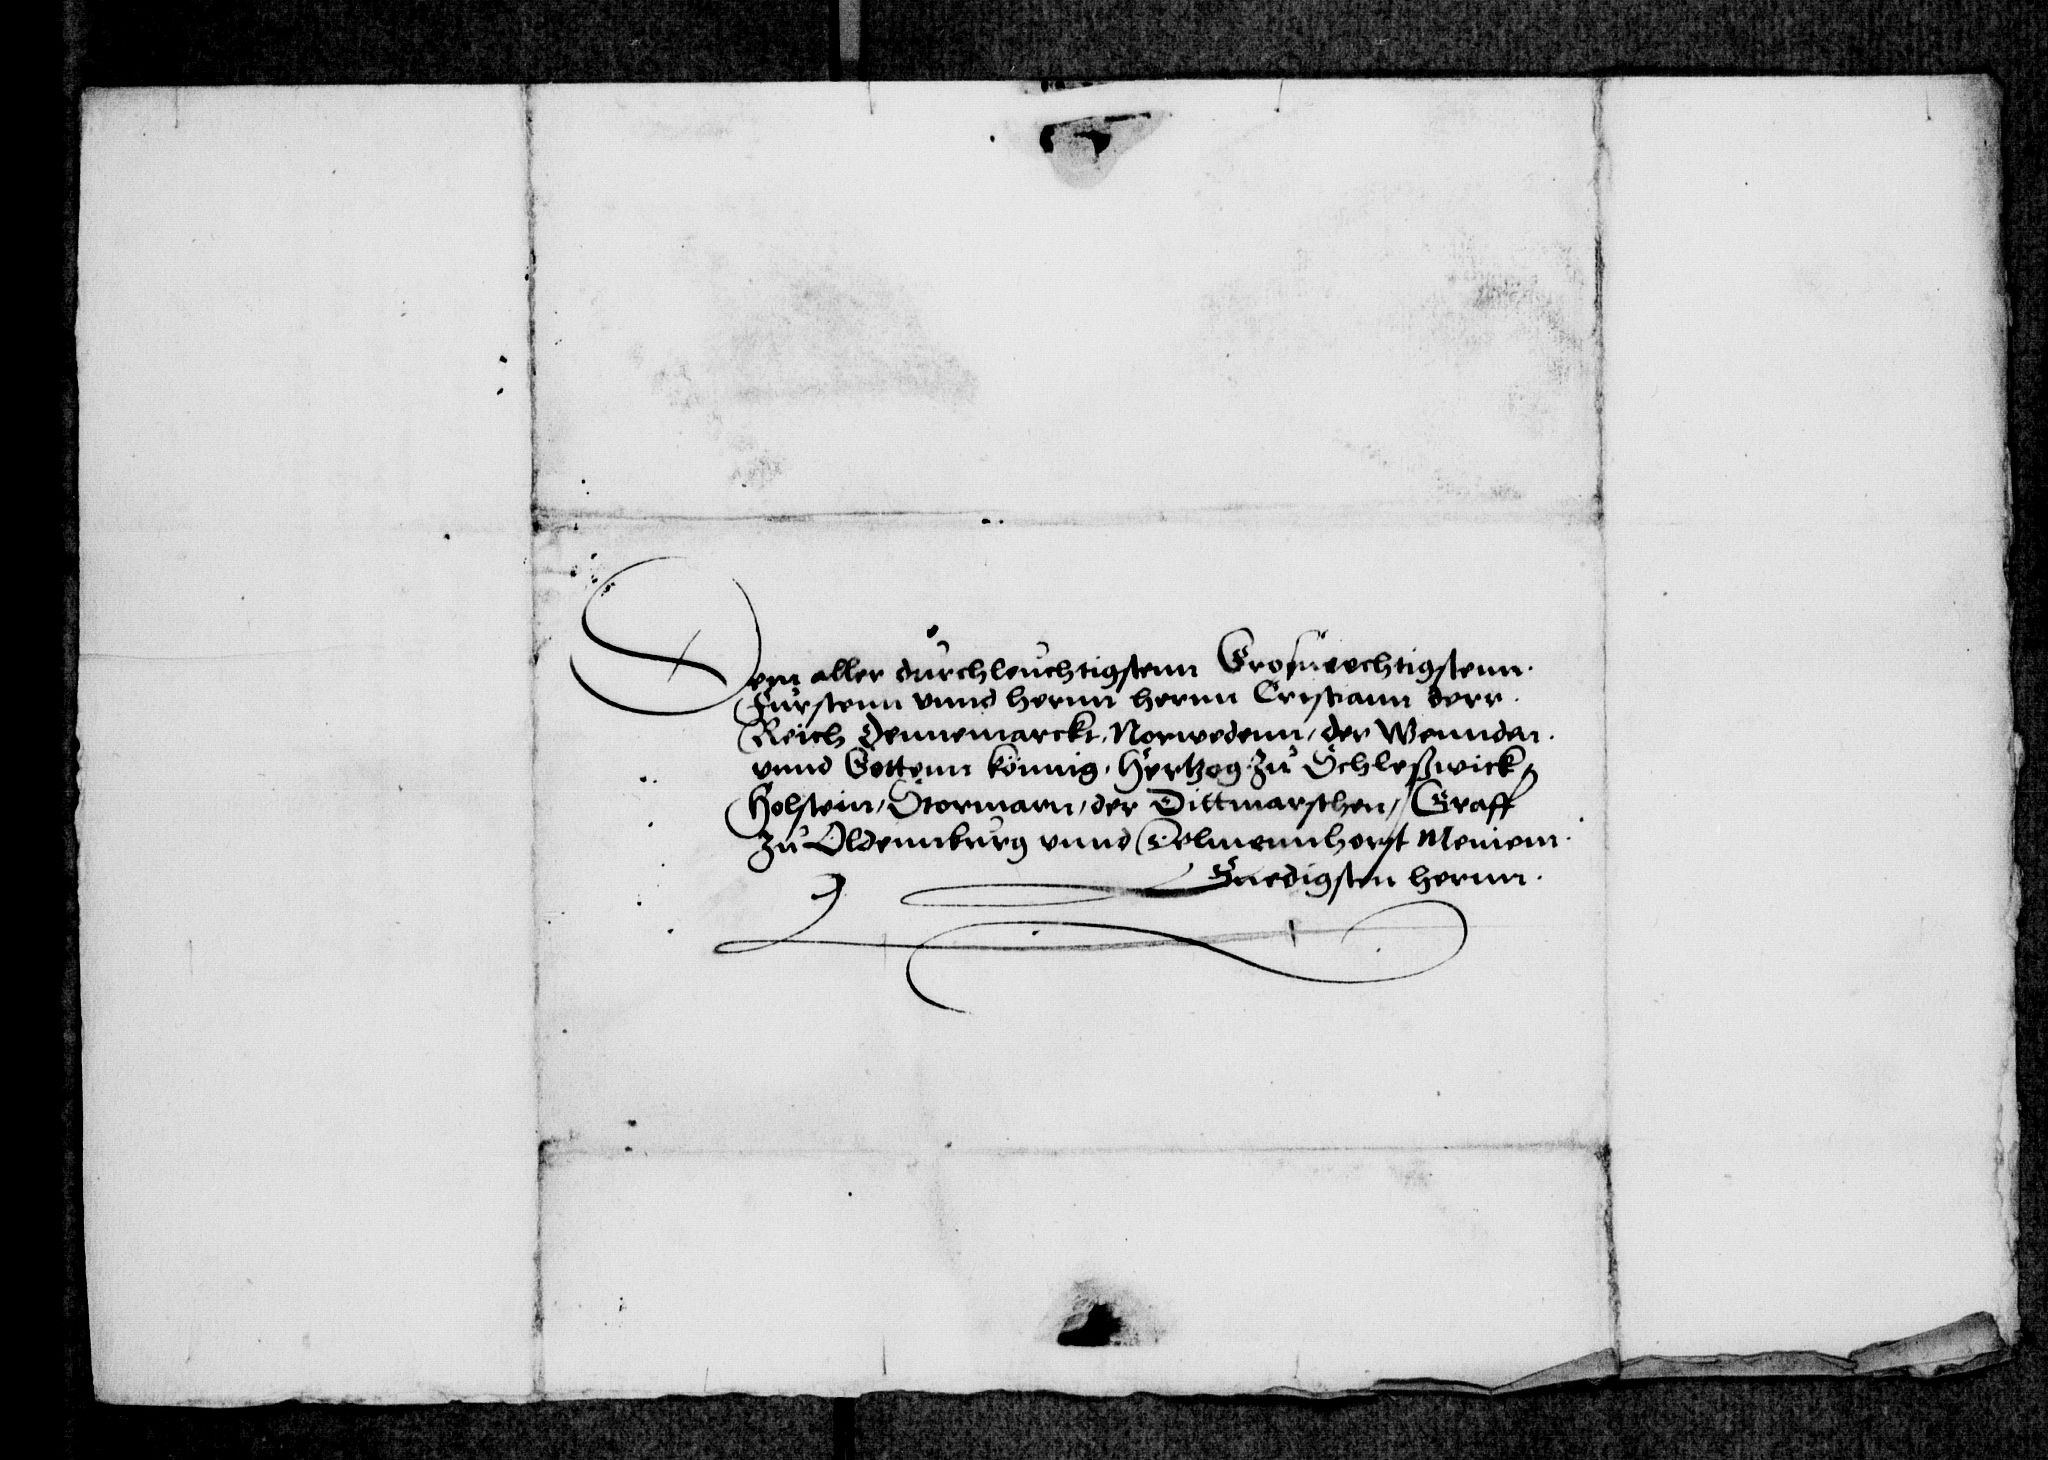 Dem aller durchleuchtigstenn Grosmechtigstenn.
Furstenn vnnd hernn hernn Cristiann derr.
Reich Dennemarckt, Norwedenn, der Wennden.
vnnd Gottenn könnig, Hertzog zu Schleßwick,
Holstein, Stormarn, der Dittmarschen, Graff
zu Oldennburg vnnd Delmennhorst Meniem.
Gnedigsten hernn.